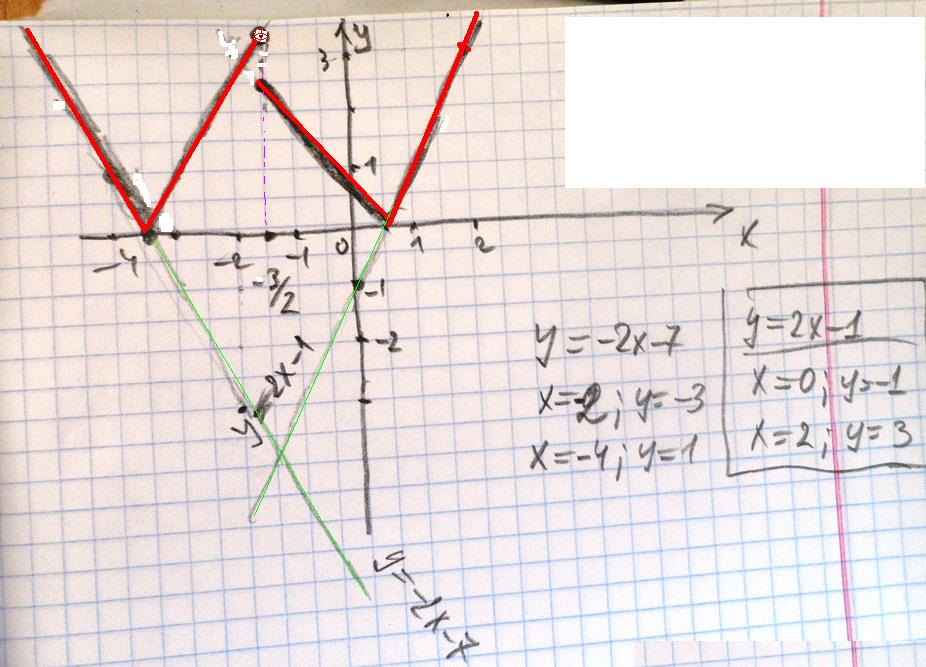 y
3
1
-4 -2 -1 0 1 2 x
-3/2
-1
-2
y=2x-1
y=-2x-7
y=-2x-7
x=-2; y=-3
x=-4; y=1
y=2x-1
x=0; y=-1
x=2; y=3